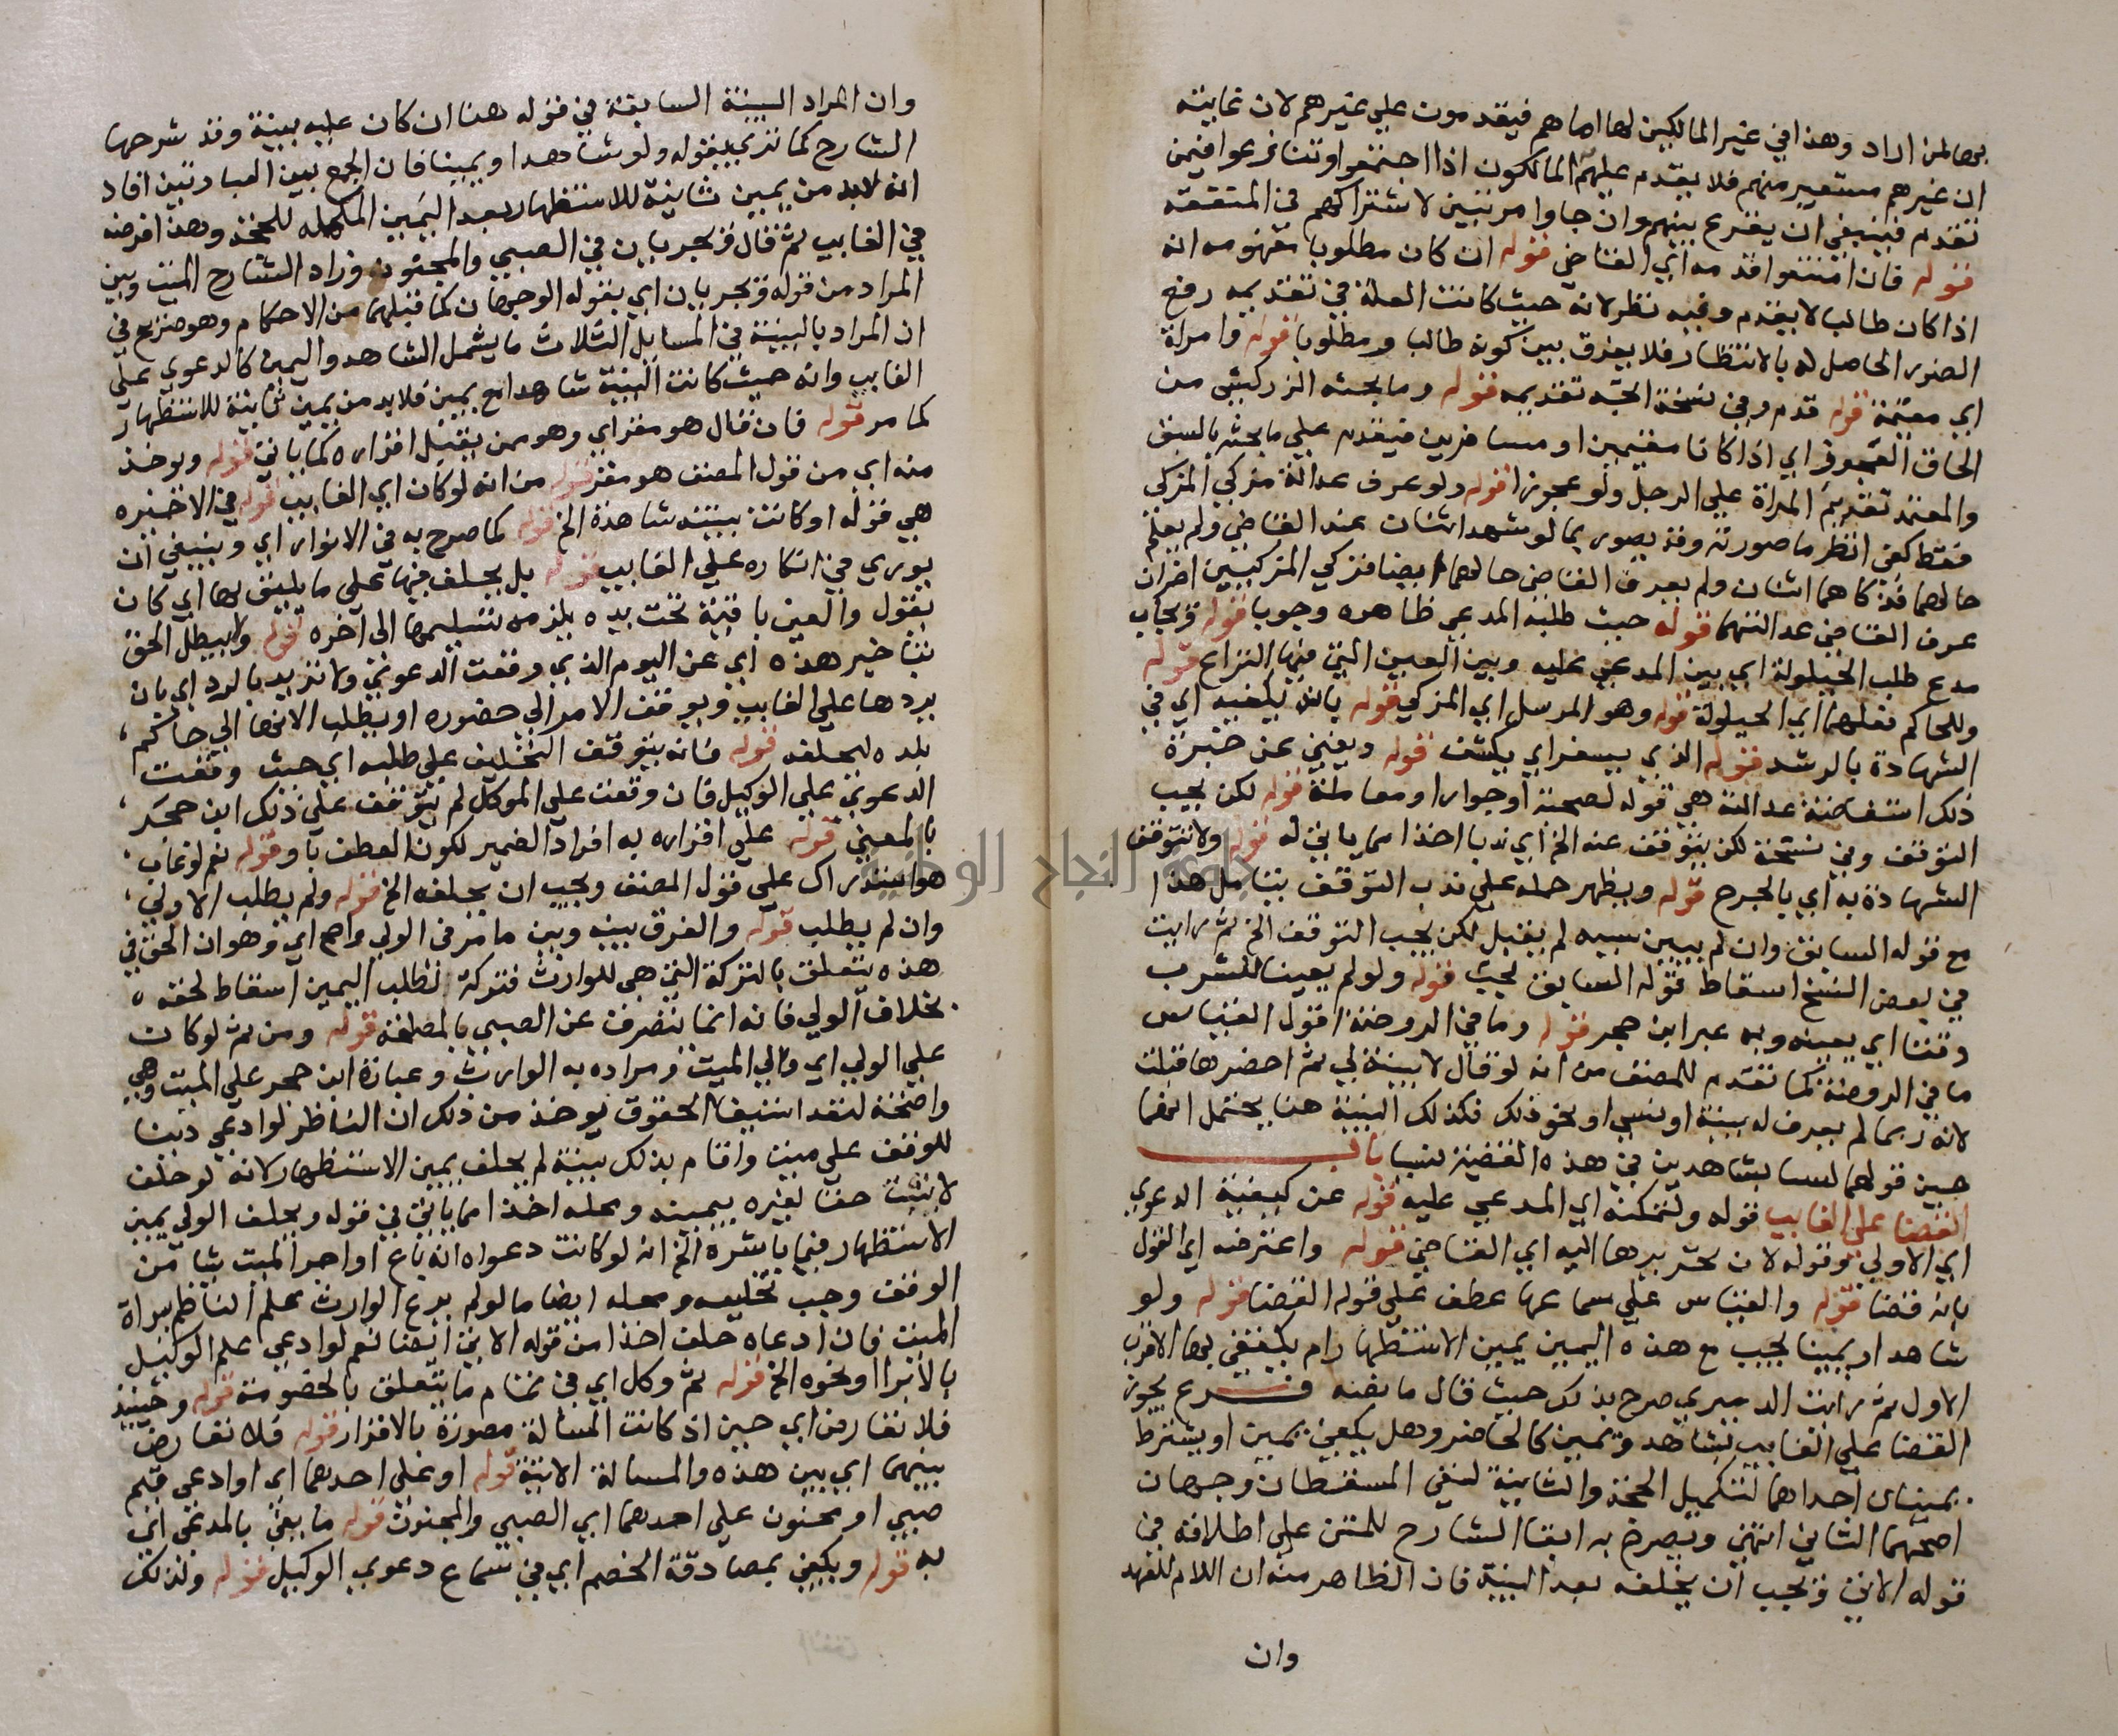 بها لمن اراد وهذا في غير المالكين لها اما هم فيقدمون علي غيرهم لان غايته
ان غيرهم مستعير منهم فلا يقدم عليهم المالكون اذا اجتمعوا وتنازعوا فيمن
تقدم فينبغي ان يقرع بينهم وان جاوا مرتبين لاشتراكهم في المنفعة
قوله فان امتنعوا قدمه اي القاضي قوله ان كان مطلوبا مفهومه انه
اذا كان طالبا لا يقدم وفيه نظر لانه حيث كانت العلة في تقديمه رفع
الضرر الحاصل له بالانتظار فلا يفرق بين كونه طالب ومطلوبا قوله وامراة
اي مقيمة قوله قدم وفي نسخة اتجه تقديمه قوله وما بحثه الزركشي من
الحاق العجوز اي اذا كانا مقيمين او مسافرين فيقدم علي ما بحثه بالسبق
والمعتمد تقديم المراة علي الرجل ولو عجوزا قوله ولو عرف عدالة مزكي المزكي
فقط كفي انظر ما صورته وقد يصور بما لو شهد اثنان عند القاضي ولم يعلم
حالهما فزكاهما اثنان ولم يعرف القاضي حالهما ايضا فزكي المزكيين اخران
عرف القاضي عدالتهما قوله حيث طلبه المدعي ظاهره وجوبا قوله ويجاب
مدع طلب الحيلولة اي بين المدعي عليه وبين العين التي فيها النزاع قوله
وللحاكم فعلهما اي الحيلولة قوله وهو المرسل اي المزكي قوله بانه يكفيه اي في
الشهادة بالرشد قوله الذي يسفر اي يكشف قوله ويغني عن خبرة
ذلك استفاضة عدالته هي قوله لصحبة او جوار او معاملة قوله لكن يجب
التوقف وفي نسخة لكن يتوقف عنه الخ اي ندبا اخذا مما ياتي له قوله ولا تتوقف
الشهادة به اي بالجرح قوله ويظهر حمله علي ندب التوقف بتامل هذا
مع قوله السابق وان لم يبين سببه لم يقبل لكن يجب التوقف الخ ثم رايت
في بعض النسخ اسقاط قوله السابق يجب قوله ولو لم يعينا للشرب
وقتا اي بعينه وبه عبر ابن حجر قوله وما في الروضة اقول القياس
ما في الروضة كما تقدم للمصنف من انه لو قال لا بينة لي ثم احضرها قبلت
لانه ربما لم يعرف له بينة او نسي او نحو ذلك فكذلك البينة هنا يحتمل انهما
حين قولهما لسنا بشاهدين في هذه القضية نسيا باب
القضا علي الغايب قوله ولتمكنه اي المدعي عليه قوله عن كيفية الدعوي
اي الاولي وقوله لان تحريرها اليه اي القاضي قوله واعترضه اي القول
بانه قضا قوله والقياس علي سماعها عطف علي قوله القضا قوله ولو
شاهدا ويمينا يجب مع هذه اليمين يمين الاستظهار ام يكتفي بها الاقرب
الاول ثم رايت الدميري صرح بذلك حيث قال ما نصه فرع يجوز
القضا علي الغايب بشاهد ويمين كالحاضر وهل يكفي يمين او يشترط
يمينان احداهما لتكميل الحجة والثانية لنفي المسقطات وجهان
اصحهما الثاني انتهي ويصرح به ابقا الشارح للمتن علي اطلاقه في
قوله الاتي ويجب ان يحلفه بعد البينة فان الظاهر منه ان اللام للعهد
وان
وان المراد البينة السابقة في قوله هنا ان كان عليه بينة وقد شرحها
الشارح كما تري بقوله ولو شاهدا ويمينا فان الجمع بين العبارتين افاد
انه لابد من يمين ثانية للاستظهار بعد اليمين المكمله للحجة وهذا فرضه
في الغايب ثم قال ويجريان في الصبي والمجنون وزاد الشارح الميت وبين
المراد من قوله ويجريان اي بقوله الوجهان كما قبلهما من الاحكام وهو صريح في
ان المراد بالبينة في المسايل الثلاث ما يشمل الشاهد واليمين كالدعوي علي
الغايب وانه حيث كانت البينة شاهدا مع يمين فلابد من يمين ثانية للاستظهار
كما مر قوله فان قال هو مقر اي وهو ممن يقبل اقراره كما ياتي قوله ويوخذ
منه اي من قول المصنف هو مقر قوله من انه لو كان اي الغايب قوله في الاخيرة
هي قوله او كانت بينته شاهدة الخ قوله كما صرح به في الانوار اي وينبغي ان
يوري في انكاره علي الغايب قوله بل يحلف فيها علي ما يليق بها اي كان
يقول والعين باقية تحت يده يلزمه تسليمها الي آخره قوله ولا يبطل الحق
بتاخير هذه اي عن اليوم الذي وقعت الدعوي ولا تزيد بالرد اي بان
يردها علي الغايب ويوقف الامر الي حضوره او يطلب الانها الي حاكم
بلده ليحلفه قوله فانه يتوقف التحليف علي طلبه اي حيث وقعت
الدعوي علي الوكيل فان وقعت علي الموكل لم يتوقف علي ذلك ابن حجر
بالمعني قوله علي اقراره به افراد الضمير لكون العطف باو قوله نعم لو غاب
هو استدراك علي قول المصنف ويجب ان يحلفه الخ قوله ولم يطلب الاولي
وان لم يطلب قوله والفرق بينه وبين ما مر في الولي واضح اي وهو ان الحق في
هذه يتعلق بالتركة التي هي للوارث فتركه لطلب اليمين اسقاط لحقه
بخلاف الولي فانه انما يتصرف عن الصبي بالمصلحة قوله ومن ثم لو كان
علي الولي اي ولي الميت ومراده به الوارث وعبارة ابن حجر علي الميت وهي
واضحة لنقد استيفا الحقوق يوخذ من ذلك ان الناظر لو ادعي دينا
للوقف علي ميت واقام بذلك بينة لم يحلف يمين الاستظهار لانه لو حلف
لاثبت حقا لغيره بيمينه ومحله اخذا مما ياتي في قوله ويحلف الولي يمين
الاستظهار فيما باشره الخ انه لو كانت دعواه انه باع او اجر الميت شيا من
الوقف وجب تحليفه ومحله ايضا ما لو لم يدع الوارث علم الناظم براة
الميت فان ادعاه حلف اخذا من قوله الاتي ايضا نعم لو ادعي علم الوكيل
بالابرا او نحوه الخ قوله ثم وكل اي في تمام ما يتعلق بالخصومة قوله وحينيذ
فلا تعارض اي حين اذ كانت المسالة مصورة بالاقرار قوله فلا تعارض
بينهما اي بين هذه والمسالة الاتية قوله او علي احدهما اي او ادعي قيم
صبي او مجنون علي احدهما اي الصبي والمجنون قوله ما بقي بالمدعي اي
به قوله ويكفي بمصادقة الخصم اي في سماع دعوي الوكيل قوله ولذلك
جامعة النجاح الوطنية